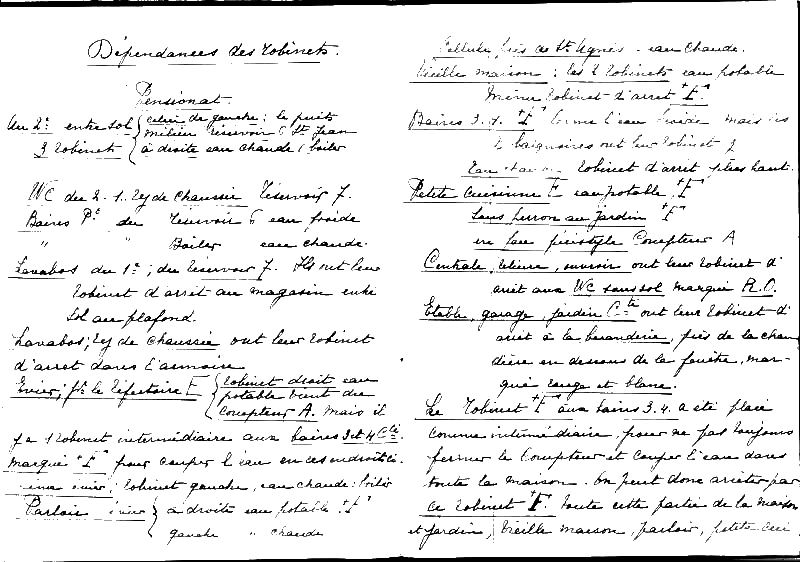 Dépendances des Robinets.
Pensionat.
Au 2º entre sol celui de gauche : le puits
milieu réservoir 6 St Jean
3 Robinets à droite eau chaude / boiler
WC du 2. 1. Rez de chaussée réservoir 7.
Baires P.é du réservoir 6 eau froide
" " Boiler eau chaude.
Lavabos du 1º ; du réservoir 7. Ils ont leur
robinet d'arrêt au magasin entre
sol au plafond.
Lavabos ; Rez de chaussée ont leur robinet
d'arret dans l'armoire
Evier ; pte le Réfectoire E robinet droit eau
potable vient du
Compteur A. Mais il
y a 1 robinet intermédiaire aux baires 3 et 4 Cté.
marqué "E" pour couper l'eau en ces endroits.
évier ; robinet gauche, eau chaude : boiler
Parloir évier à droite eau potable "E"
gauche " chaude
Cellule près de St Agnès - eau chaude.
Vieille maison : les 2 robinets eau potable
Même robinet d'arret "E"
Baires 3. 4. "E" ferme l'eau froide mais les
baignoires ont leur robinet
Eau robinet d'arrit plus haut.
Petite Cuisine E eau potable "E"
Sous perron au Jardin "E"
péristyle Compteur A
Centrale, ouvroir ont leur robinet d'
arrêt aux WC sous sol marqué R.O.
Etable, garage, jardin C-té ont leur robinet d'
arrêt à la buanderie, près de la chau
dière en dessous de la fenêtre, mar-
qué rouge et blanc.
Le Robinet "E" aux baires 3.4. a été placé
comme intermédiaire, pour ne pas toujours
fermer le Compteur et couper l'eau dans
toute la maison. On peut donc arrêter par
ce robinet "E" toute cette partie de la maison
et jardin, Vieille maison, parloir, petite cui